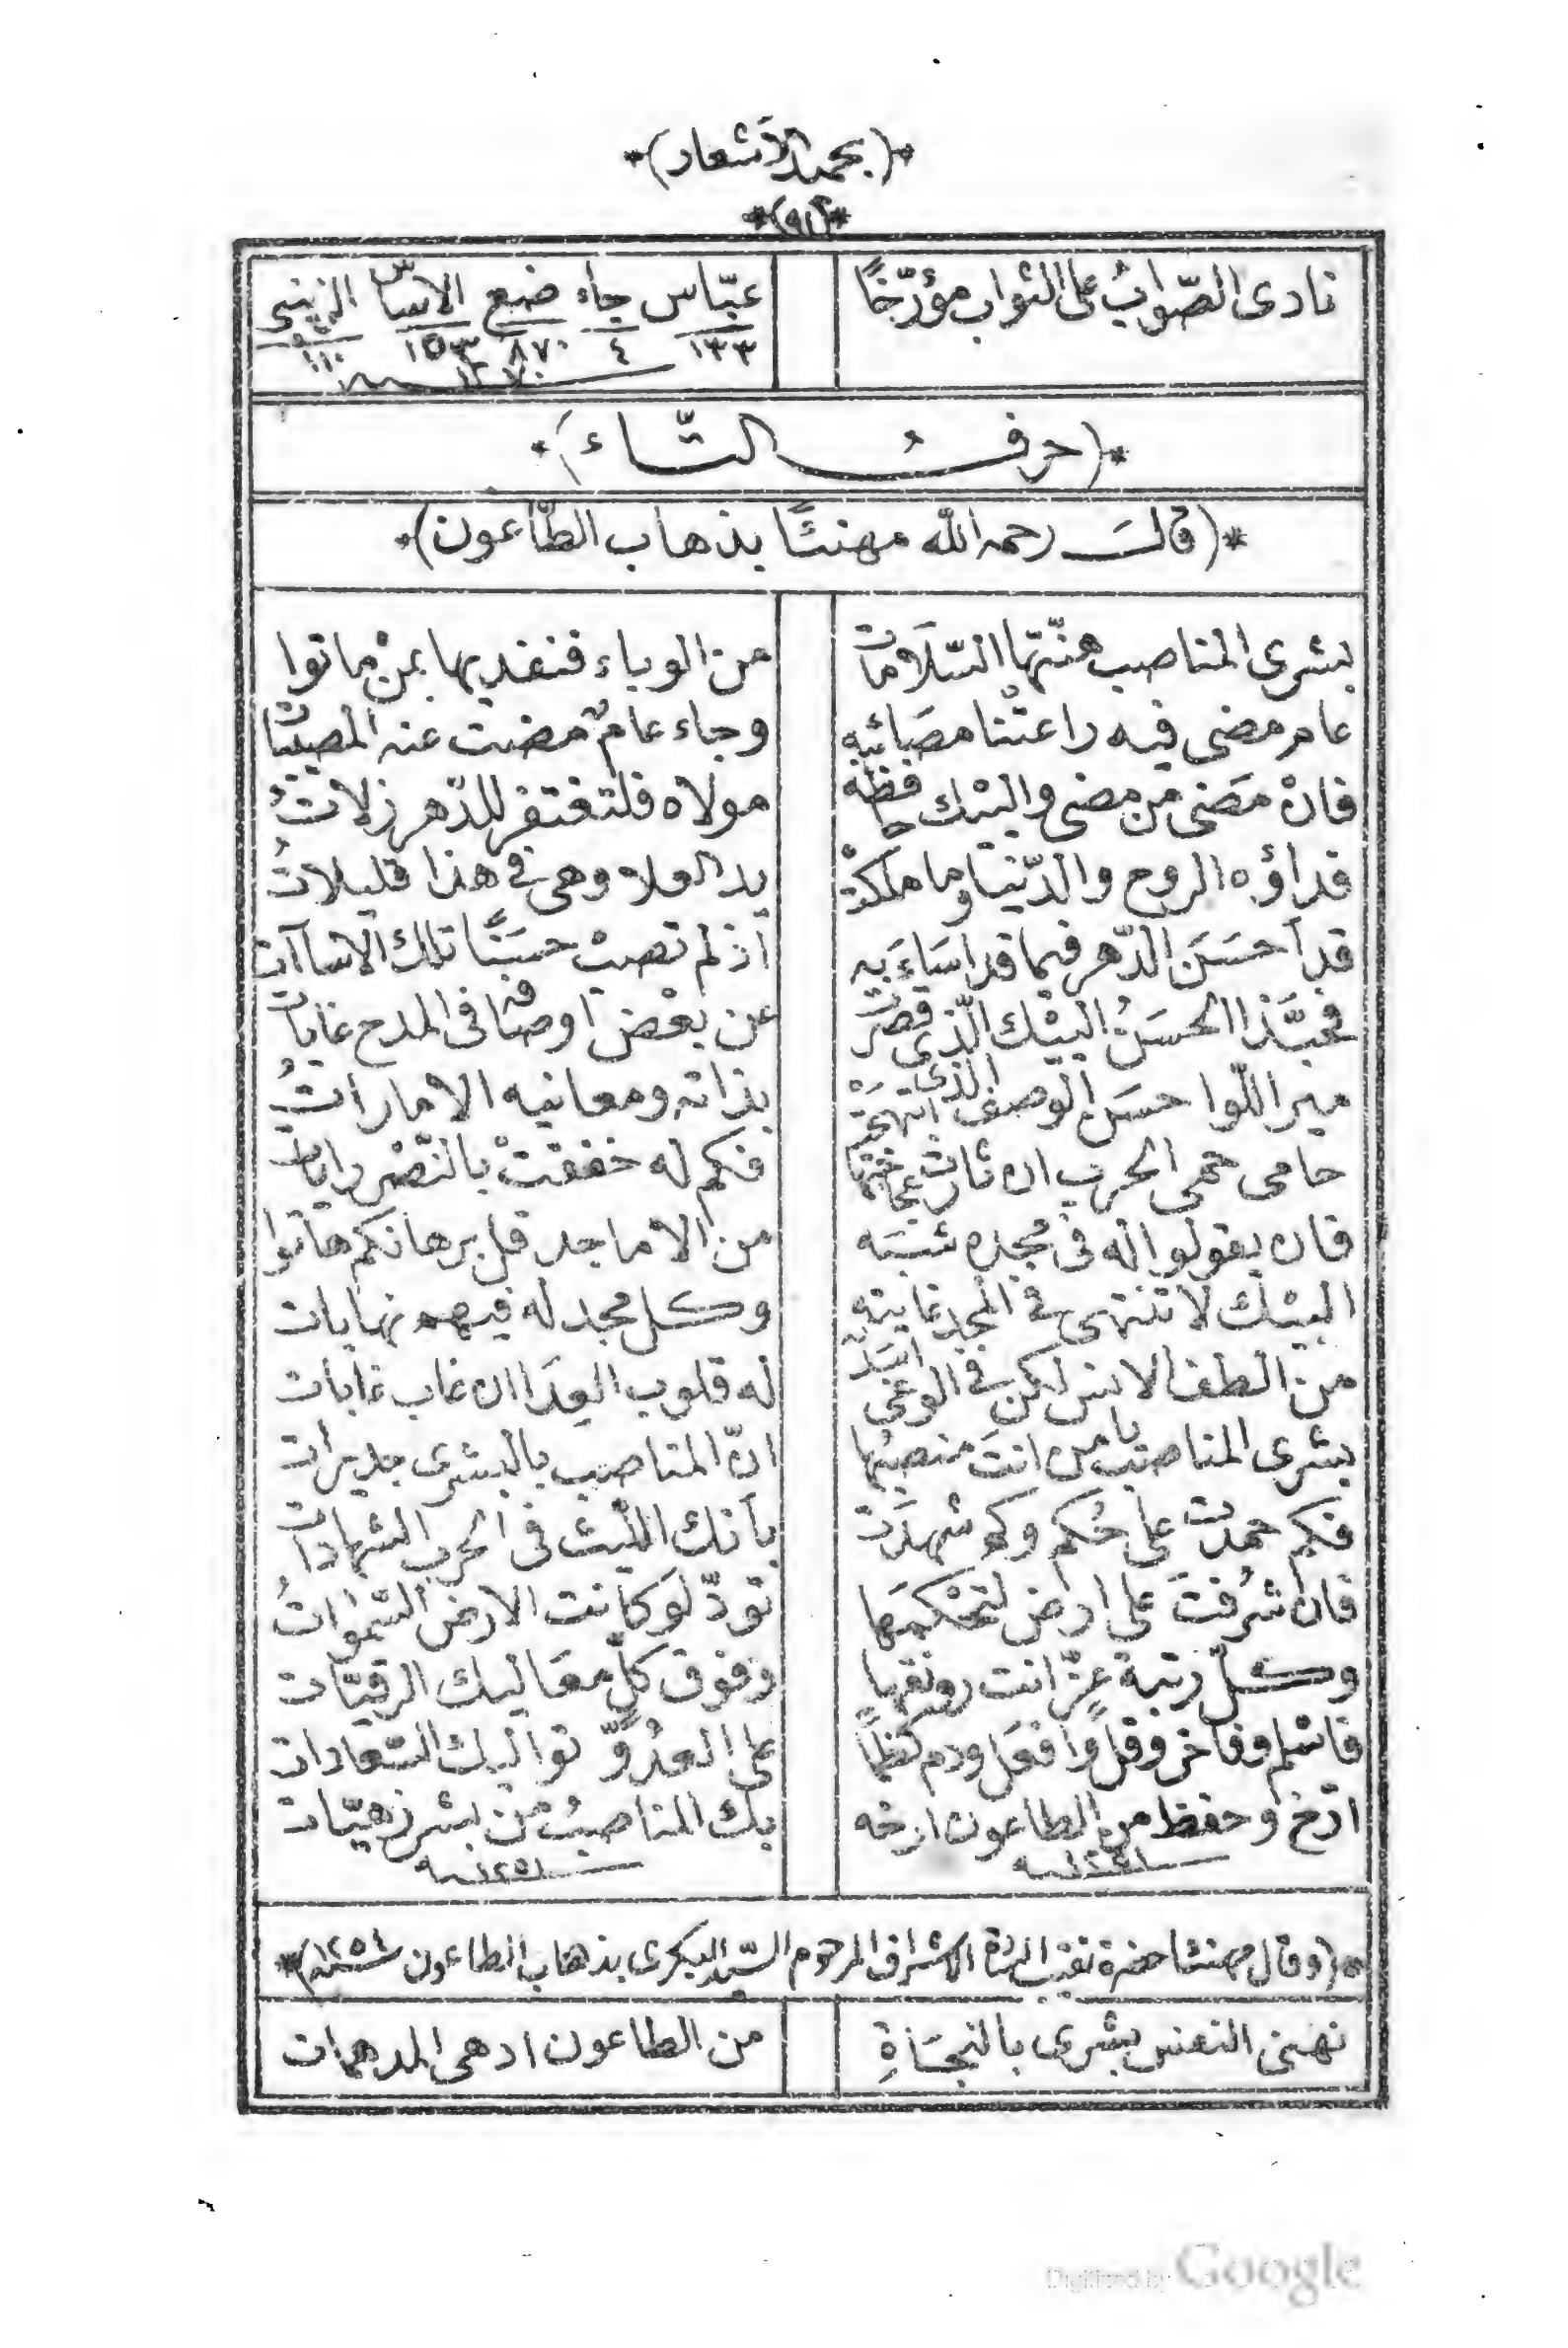 *(بحمد الأشعار)*
*(٩٢)*
نادى الصّوابُ على الثواب مؤرّخًا عبّاس جاء ضع الاساس الزينبى
١٣٣ ٤ ٨٧٠ ١٥٣ ١١٠
١٢٧٠
*(حرفُ التّاء)*
*(قال رحمه الله مهنئًا بذهاب الطّاعون)*
بشرى المناصب هنّتها السّلامات من الوباء فنفديها بمنْ ماتوا
عام مضى فيه راعتْنا مصَائبه وجاء عامٌ مضت عنه المصيبات
فانْ مضَى من مضى والبيْك حافظه مولاه فلتغتفر للدّهر زلاتُ
فداؤه الروح والدّنيا وما ملكتْ يد العلا وهى فى هذا قليلاتُ
قد أحسَنَ الدّهر فيما قد اسَاءَ به اذ لم تصبْ حسَنًا تلك الاساآت
فحبَّذا الحسَنُ البيْك الّذى قصرت عن بعْض اوصافه فى المدح غايات
مير اللّوا حسَن الوصف الذى ابتهجتْ بذاته ومعانيه الاماراتُ
حامى حمى الحرب ان ثارت عجاجتها فكم له خفقتْ بالنّصْر رايات
فان يقولوا له فى مجده شبَه من الاماجد قل برهانكم هاتوا
البيْك لا تنتهى فى المجد غايته وكل مجد له فيهم نهايات
من الطف الانس لكن فى الوغى اسَدٌ له قلوب العِدَا ان غاب غابات
بشرى المناصب يا من انتَ منصبُها انّ المناصب بالبشرى جديرات
فكم حمدت على حُكم وكم شهدَت بأنك اللّيث فى الحرب الشهادات
فان شرُفتَ على ارض لتحْكمَها تودّ لوْ كانت الارض السّمواتُ
وكلّ رتبة عزّ انت رونقها وفوق كلّ معَاليك الرقيّات
فاسْلم وفاخر وقل وافعَل ودم كظمًا على العدُوّ توَاليك السّعادات
ارّخ وحفظ من الطاعون ارخه بك المناصبُ من بشر زهيّات
١٢٥١
*(وقال مهنئا حضرة نقيب السّادة الاشراف المرحوم السّيد البكرى بذهاب الطاعون سنة ١٢٥١)*
نهنى النفس بشرى بالنجَاةِ من الطاعون ادهى المدهمات
Digitized by Google